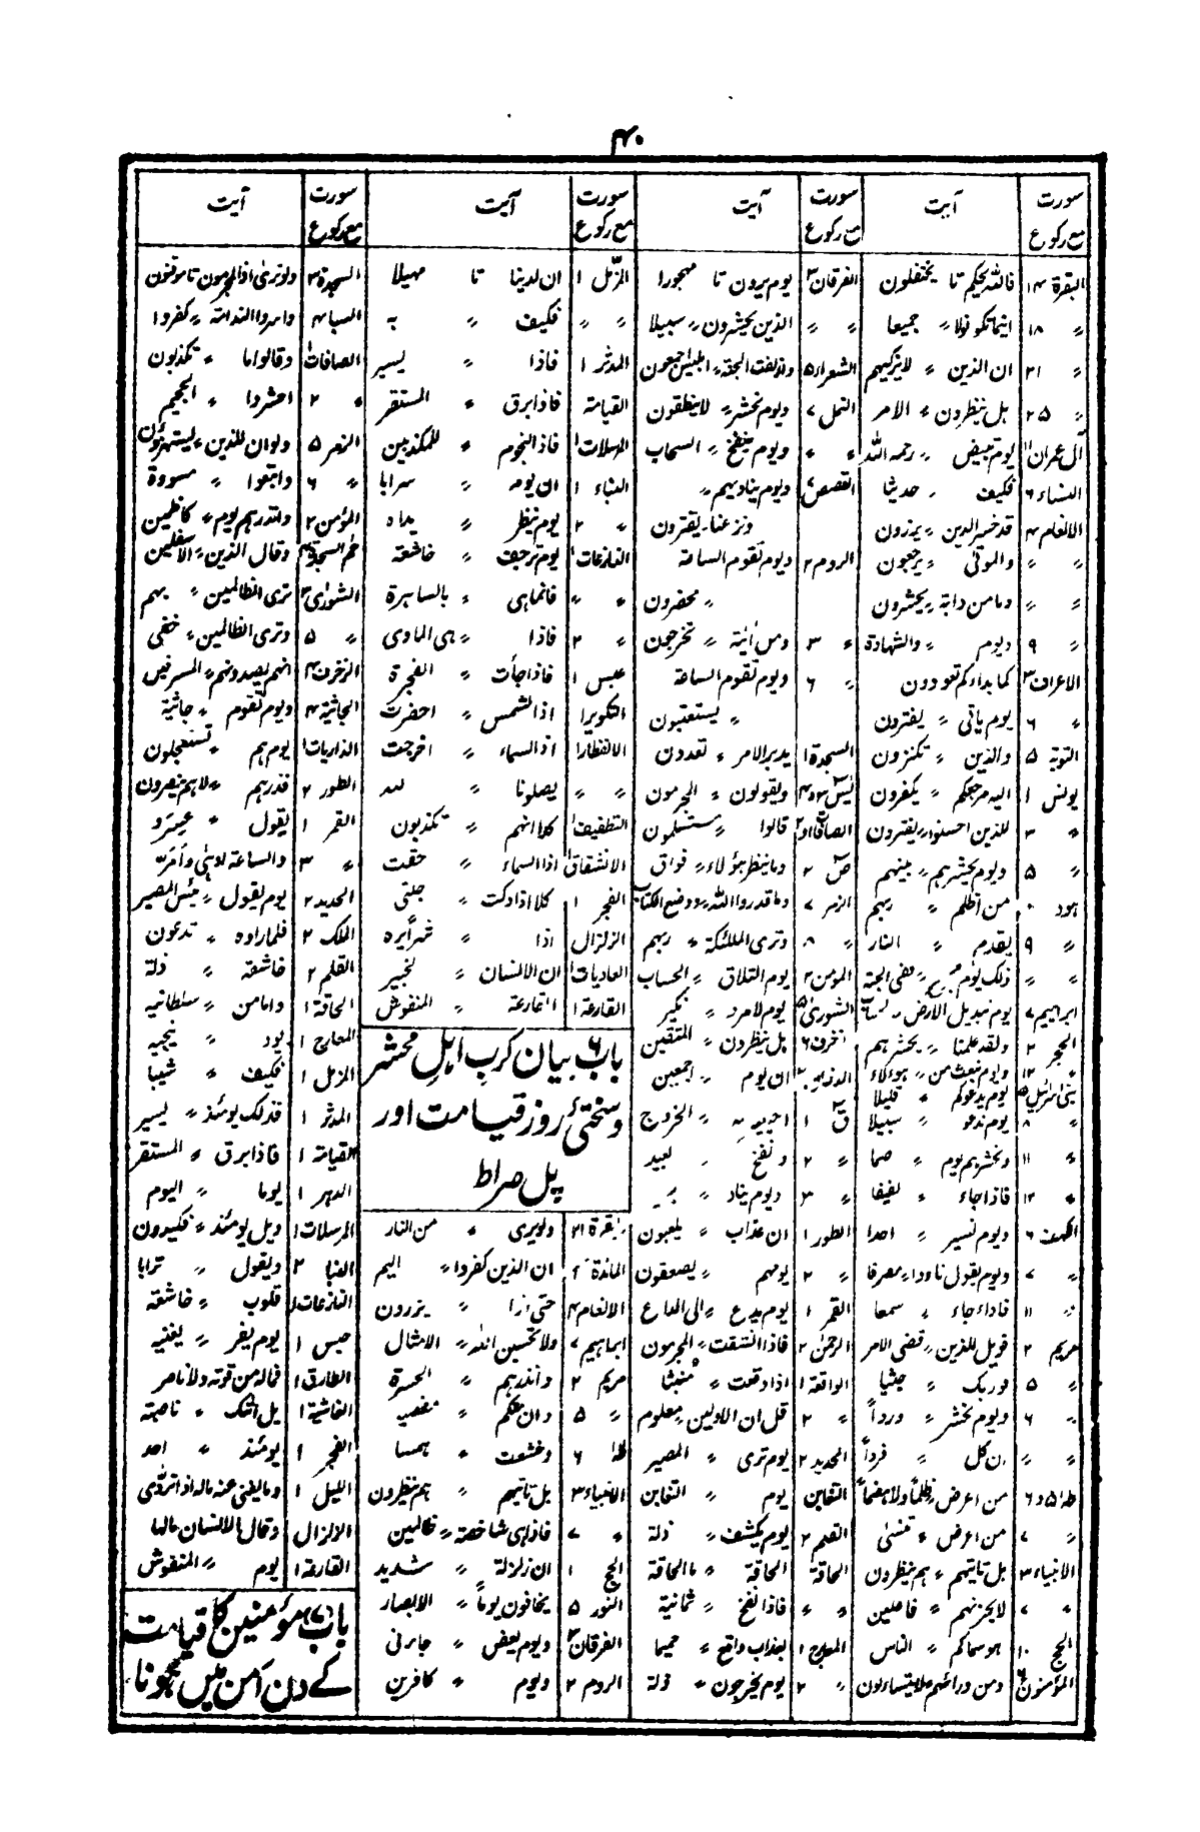 ۴۰
سورت مع رکوع آیت
البقرة ۱۴ فالله یحکم تا یختلفون
〃 ۱۸ اینما تکونوا 〃 جمیعا
〃 ۲۱ ان الذین 〃 لا یزکیهم
〃 ۲۵ بل ینظرون 〃 الامر
آل عمران ۱۱ یوم تبیض 〃 رحمه الله
النساء ۶ فکیف 〃 حدیثا
الانعام ۴ قد خسر الذین 〃 یزرون
〃 〃 والموتی 〃 یرجعون
〃 〃 وما من دابة 〃 یحشرون
〃 ۹ ویوم 〃 والشهادة
الاعراف ۳ کما بداءکم تعودون
〃 ۶ یوم یاتی 〃 یفترون
التوبة ۵ والذین 〃 تکنزون
یونس ۱ الیه مرجعکم 〃 یکفرون
〃 ۳ للذین احسنوا 〃 یفترون
〃 ۵ ویوم یحشرهم 〃 بینهم
هود من اظلم 〃 ربهم
〃 ۹ یقدم 〃 النار
〃 〃 ذلک یوم 〃 ففی الجنة
ابراهیم ۷ یوم تبدیل الارض 〃
الحجر ۲ ولقد علمنا 〃 یحشرهم
〃 ۱۲ ویوم نبعث من 〃 هؤلاء
بنی اسرائیل ۵ یوم یدعوکم 〃 قلیلا
〃 ۸ یوم ندعو 〃 سبیلا
〃 ۱۱ ونحشرهم یوم 〃 صما
〃 ۱۲ فاذا جاء 〃 لفیفا
الکهف ۶ ویوم نسیر 〃 احدا
〃 ۷ ویوم یقول نادوا 〃 مصرفا
〃 ۱۱ فاذا جاء 〃 سمعا
مریم ۲ فویل للذین 〃 قضی الامر
〃 ۵ فوربک 〃 جثیا
〃 ۶ ویوم نحشر 〃 ورداً
〃 〃 ان کل 〃 فرداً
طه ۵ و ۶ من اعرض 〃 ظلماً ولا هضماً
〃 ۷ من اعرض 〃 تنسیٰ
الانبیاء ۳ بل تاتیهم 〃 هم ینظرون
〃 ۷ لا یحزنهم 〃 فاعلین
الحج ۱۰ هو سماکم 〃 الناس
المؤمنون ۶ ومن ورائهم 〃 لا یتساءلون
سورت مع رکوع آیت
الفرقان ۳ یوم یرون تا مهجورا
〃 〃 الذین یحشرون 〃 سبیلا
الشعراء ۵ وازلفت الجنة 〃 ابلیس اجمعون
النمل ۷ ویوم نحشر 〃 لا ینطقون
〃 〃 ویوم ینفخ 〃 السحاب
القصص ۷ ویوم ینادیهم 〃
ونزعنا 〃 یفترون
الروم ۲ ویوم تقوم الساعة
〃 محضرون
〃 ۳ ومن آیٰته 〃 تخرجون
〃 ۶ ویوم تقوم الساعة
〃 یستعتبون
السجدة ۱ یدبر الامر 〃 تعدون
یٰس ۳ و ۴ ویقولون 〃 المجرمون
الصافات ۱ و ۲ قالوا 〃 مستسلمون
ص ۲ وما ینظر هؤلاء 〃 فواق
الزمر ۷ وما قدروا الله 〃 ووضع الکتاب
〃 ۸ وتری الملئکة 〃 ربهم
المومن ۲ یوم التلاق 〃 الحساب
الشوری ۵ یوم لا مرد 〃 نکیر
زخرف ۶ بل ینظرون 〃 المتقین
الدخان ۲ ان یوم 〃 اجمعین
ق ۱ 〃 الخروج
〃 ۲ ونفخ 〃 بعید
〃 ۳ ویوم یناد 〃
الطور ۱ ان عذاب 〃 یلعبون
〃 ۲ یومهم 〃 یصعقون
القمر ۱ یوم یدع 〃 الی الداع
الرحمٰن ۲ فاذا انشقت 〃 المجرمون
الواقعة ۱ اذا وقعت 〃 منبثا
〃 ۲ قل ان الاولین 〃 معلوم
الحدید ۲ یوم تری 〃 المصیر
التغابن یوم 〃 التغابن
القلم ۲ یوم یکشف 〃 ذلة
الحاقة الحاقة 〃 ما الحاقة
〃 〃 فاذا نفخ 〃 ثمانیة
المعارج ۱ بعذاب واقع 〃 حمیما
〃 ۲ یوم یخرجون 〃 ذلة
سورت مع رکوع آیت
المزمل ۱ ان لدینا تا مهیلا
〃 〃 فکیف 〃 به
المدثر ۱ فاذا 〃 یسیر
القیامة فاذا برق 〃 المستقر
المرسلات ۱ فاذا النجوم 〃 للمکذبین
النباء ۱ ان یوم 〃 سرابا
〃 ۲ یوم ینظر 〃 یداه
النازعات ۱ یوم ترجف 〃 خاشعة
〃 〃 فانما هی 〃 بالساهرة
〃 ۲ فاذا 〃 هی الماوی
عبس ۱ فاذا جأت 〃 الفجرة
التکویر ۱ اذا الشمس 〃 احضرت
الانفطار ۱ اذا السماء 〃 اخرجت
〃 〃 یصلونها 〃 لله
التطفیف ۱ کلا انهم 〃 تکذبون
الانشقاق ۱ اذا السماء 〃 حقت
الفجر ۱ کلا اذا دکت 〃 جنتی
الزلزال اذا 〃 شراً یره
العادیات ۱ ان الانسان 〃 لخبیر
القارعة ۱ القارعة 〃 المنفوش
باب ۶ بیان کرب اہلِ محشر
و سختئ روز قیامت اور
پل صراط
بقرة ۲۱ ولو یری 〃 من النار
المائدة ۶ ان الذین کفروا 〃 الیم
الانعام ۴ حتی اذا 〃 یزرون
ابراهیم ۷ ولا تحسبن الله 〃 الامثال
مریم ۲ وانذرهم 〃 الحسرة
〃 ۵ وان منکم 〃 مقضیا
طه ۶ وخشعت 〃 همسا
الانبیاء ۳ بل تاتیهم 〃 هم ینظرون
〃 ۷ فاذا هی شاخصة 〃 ظالمین
الحج ۱ ان زلزلة 〃 شدید
النور ۵ یخافون یوماً 〃 الابصار
الفرقان ۳ ویوم یعض 〃
الروم ۲ ویوم 〃 کافرین
سورت مع رکوع آیت
السجدة ۲ ولو تری اذ المجرمون تا موقنون
السبا ۴ واسروا الندامة 〃 کفروا
الصافات وقالوا یا 〃 تکذبون
〃 ۲ احشروا 〃 الجحیم
الزمر ۵ ولو ان للذین 〃 لیستهزؤن
〃 ۶ واتبعوا 〃 مسودة
المؤمن ۲ وانذرهم یوم 〃 کاظمین
حم السجدة وقال الذین 〃 الاسفلین
الشوری ۳ تری الظالمین 〃 بهم
〃 ۵ وتری الظالمین 〃 خفی
الزخرف ۴ انهم یصدونهم 〃 المسرفین
الجاثیة ۴ ویوم تقوم 〃 جاثیة
الذاریات ۱ یوم هم 〃 تستعجلون
الطور ۲ فذرهم 〃 لا هم ینصرون
القمر ۱ یقول 〃 عسر و
〃 ۳ والساعة ادهیٰ وامرّ
الحدید ۲ یوم یقول 〃 بئس المصیر
الملک ۲ فلما راوه 〃 تدعون
القلم ۲ خاشعة 〃 ذلة
الحاقة ۱ واما من 〃 سلطانیه
المعارج ۱ یود 〃 ینجیه
المزمل ۱ فکیف 〃 شیبا
المدثر ۱ فذلک یومئذ 〃 یسیر
القیامة ۱ فاذا برق 〃 المستقر
الدهر ۱ یوما 〃 الیوم
المرسلات ۱ ویل یومئذ 〃 فکیدون
النبا ۲ ویقول 〃 ترابا
النازعات ۱ قلوب 〃 خاشعة
عبس ۱ یوم یفر 〃 یغنیه
الطارق ۱ فماله من قوته ولا ناصر
الغاشیة ۱ هل اتٰک 〃 ناصبة
الفجر ۱ یومئذ 〃 احد
اللیل ۱ وما یغنی عنه ماله اذا تردّی
الزلزال وقال الانسان مالها
القارعة ۱ یوم 〃 المنفوش
باب (۷) مؤمنین کا قیامت
کے دن امن میں ہونا